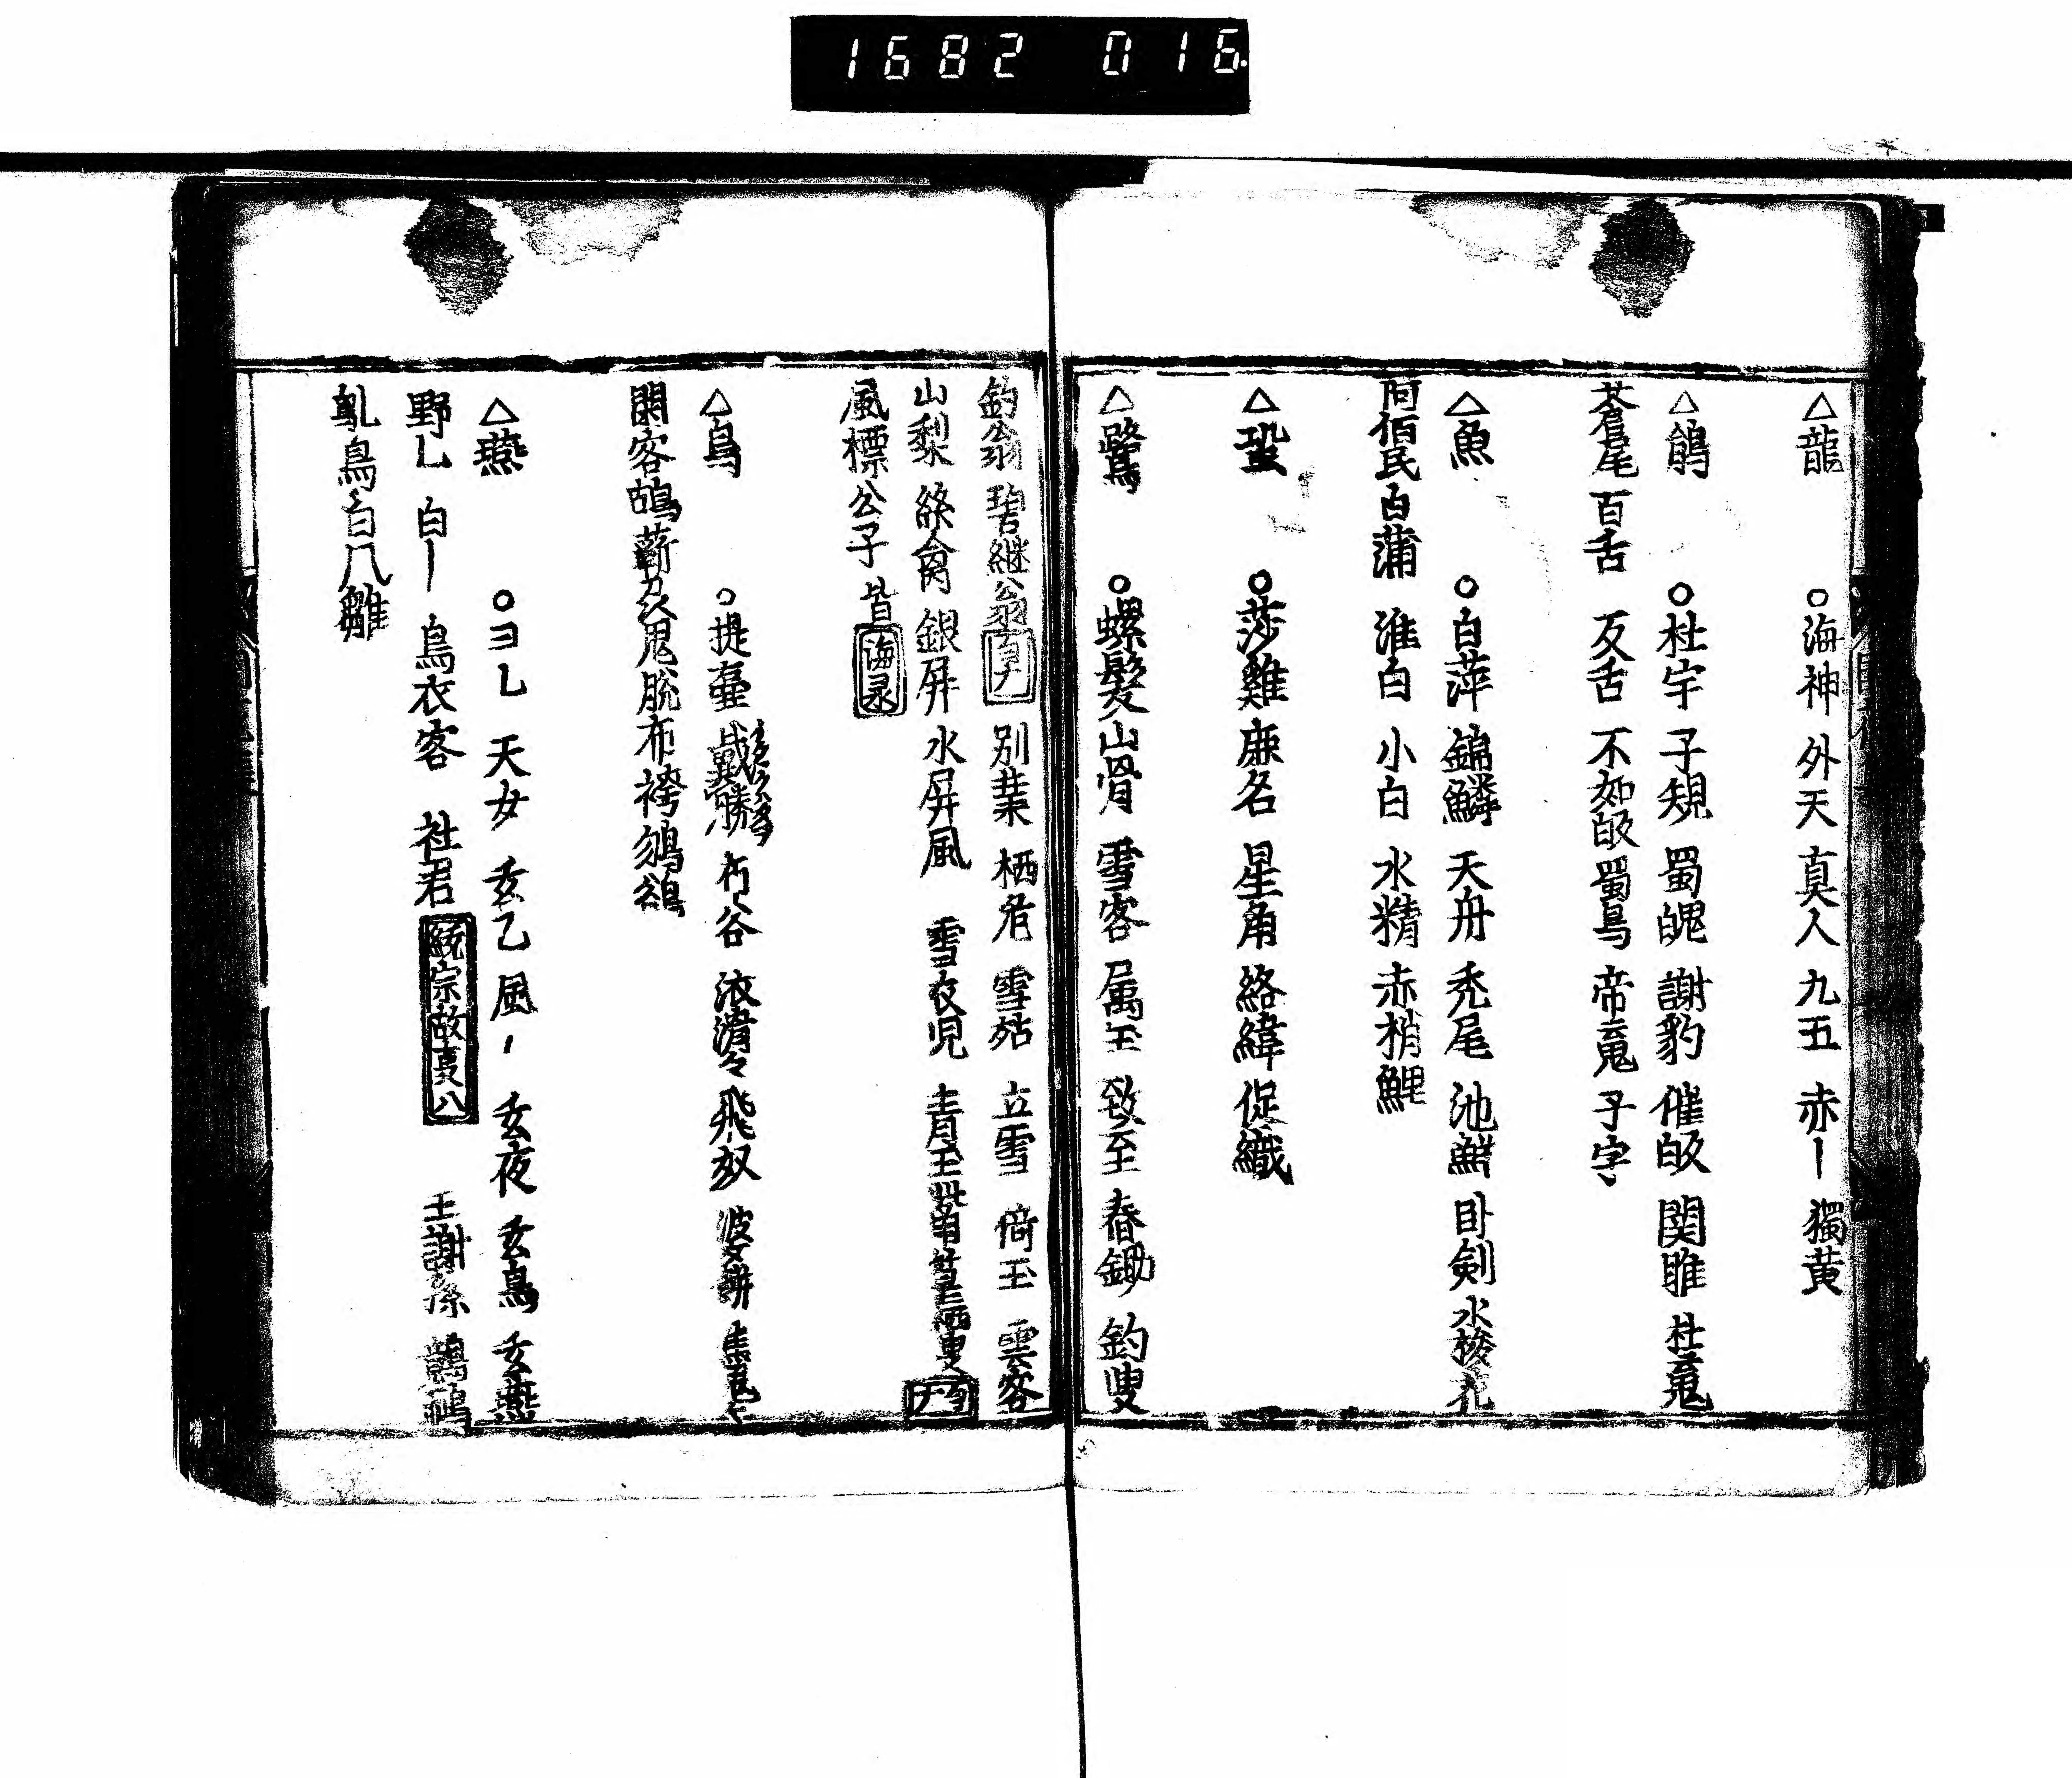 1682 016.
△龍 ○海神 外天 真人 九五 赤ー 獨黄
△鵑 ○杜宇 子規 蜀魄 謝豹 催皈 関雎 杜䰟
蒼尾 百舌 反舌 不如皈 蜀鳥 帝䰟 子字
△魚 ○白萍 錦鱗 天舟 禿尾 池鱗 卧剣 水梭花
河伯民 白蒲 淮白 小白 水精 赤梢鯉
△蛩 ○莎雞 廉名 星角 絡緯 促織
△鷺 ○螺髮 山骨 雪客 属玉 致至 春鋤 釣叟
釣翁 碧継翁 別業 栖危 雪姑 立雪 倚玉 雲客
山梨 絲禽 銀屏 水屏風 雪衣児 青玉
風標公子 皆海录
△鳥 ○提壷 戴勝 朽谷 飛奴
閑客 脱布袴
△燕 ○ヨ乚 天女 玄乙 風丶 玄夜 玄鳥 玄燕
野乚 白ー 烏衣客 社君 統宗故事八 王謝孫
乳鳥 白八雛